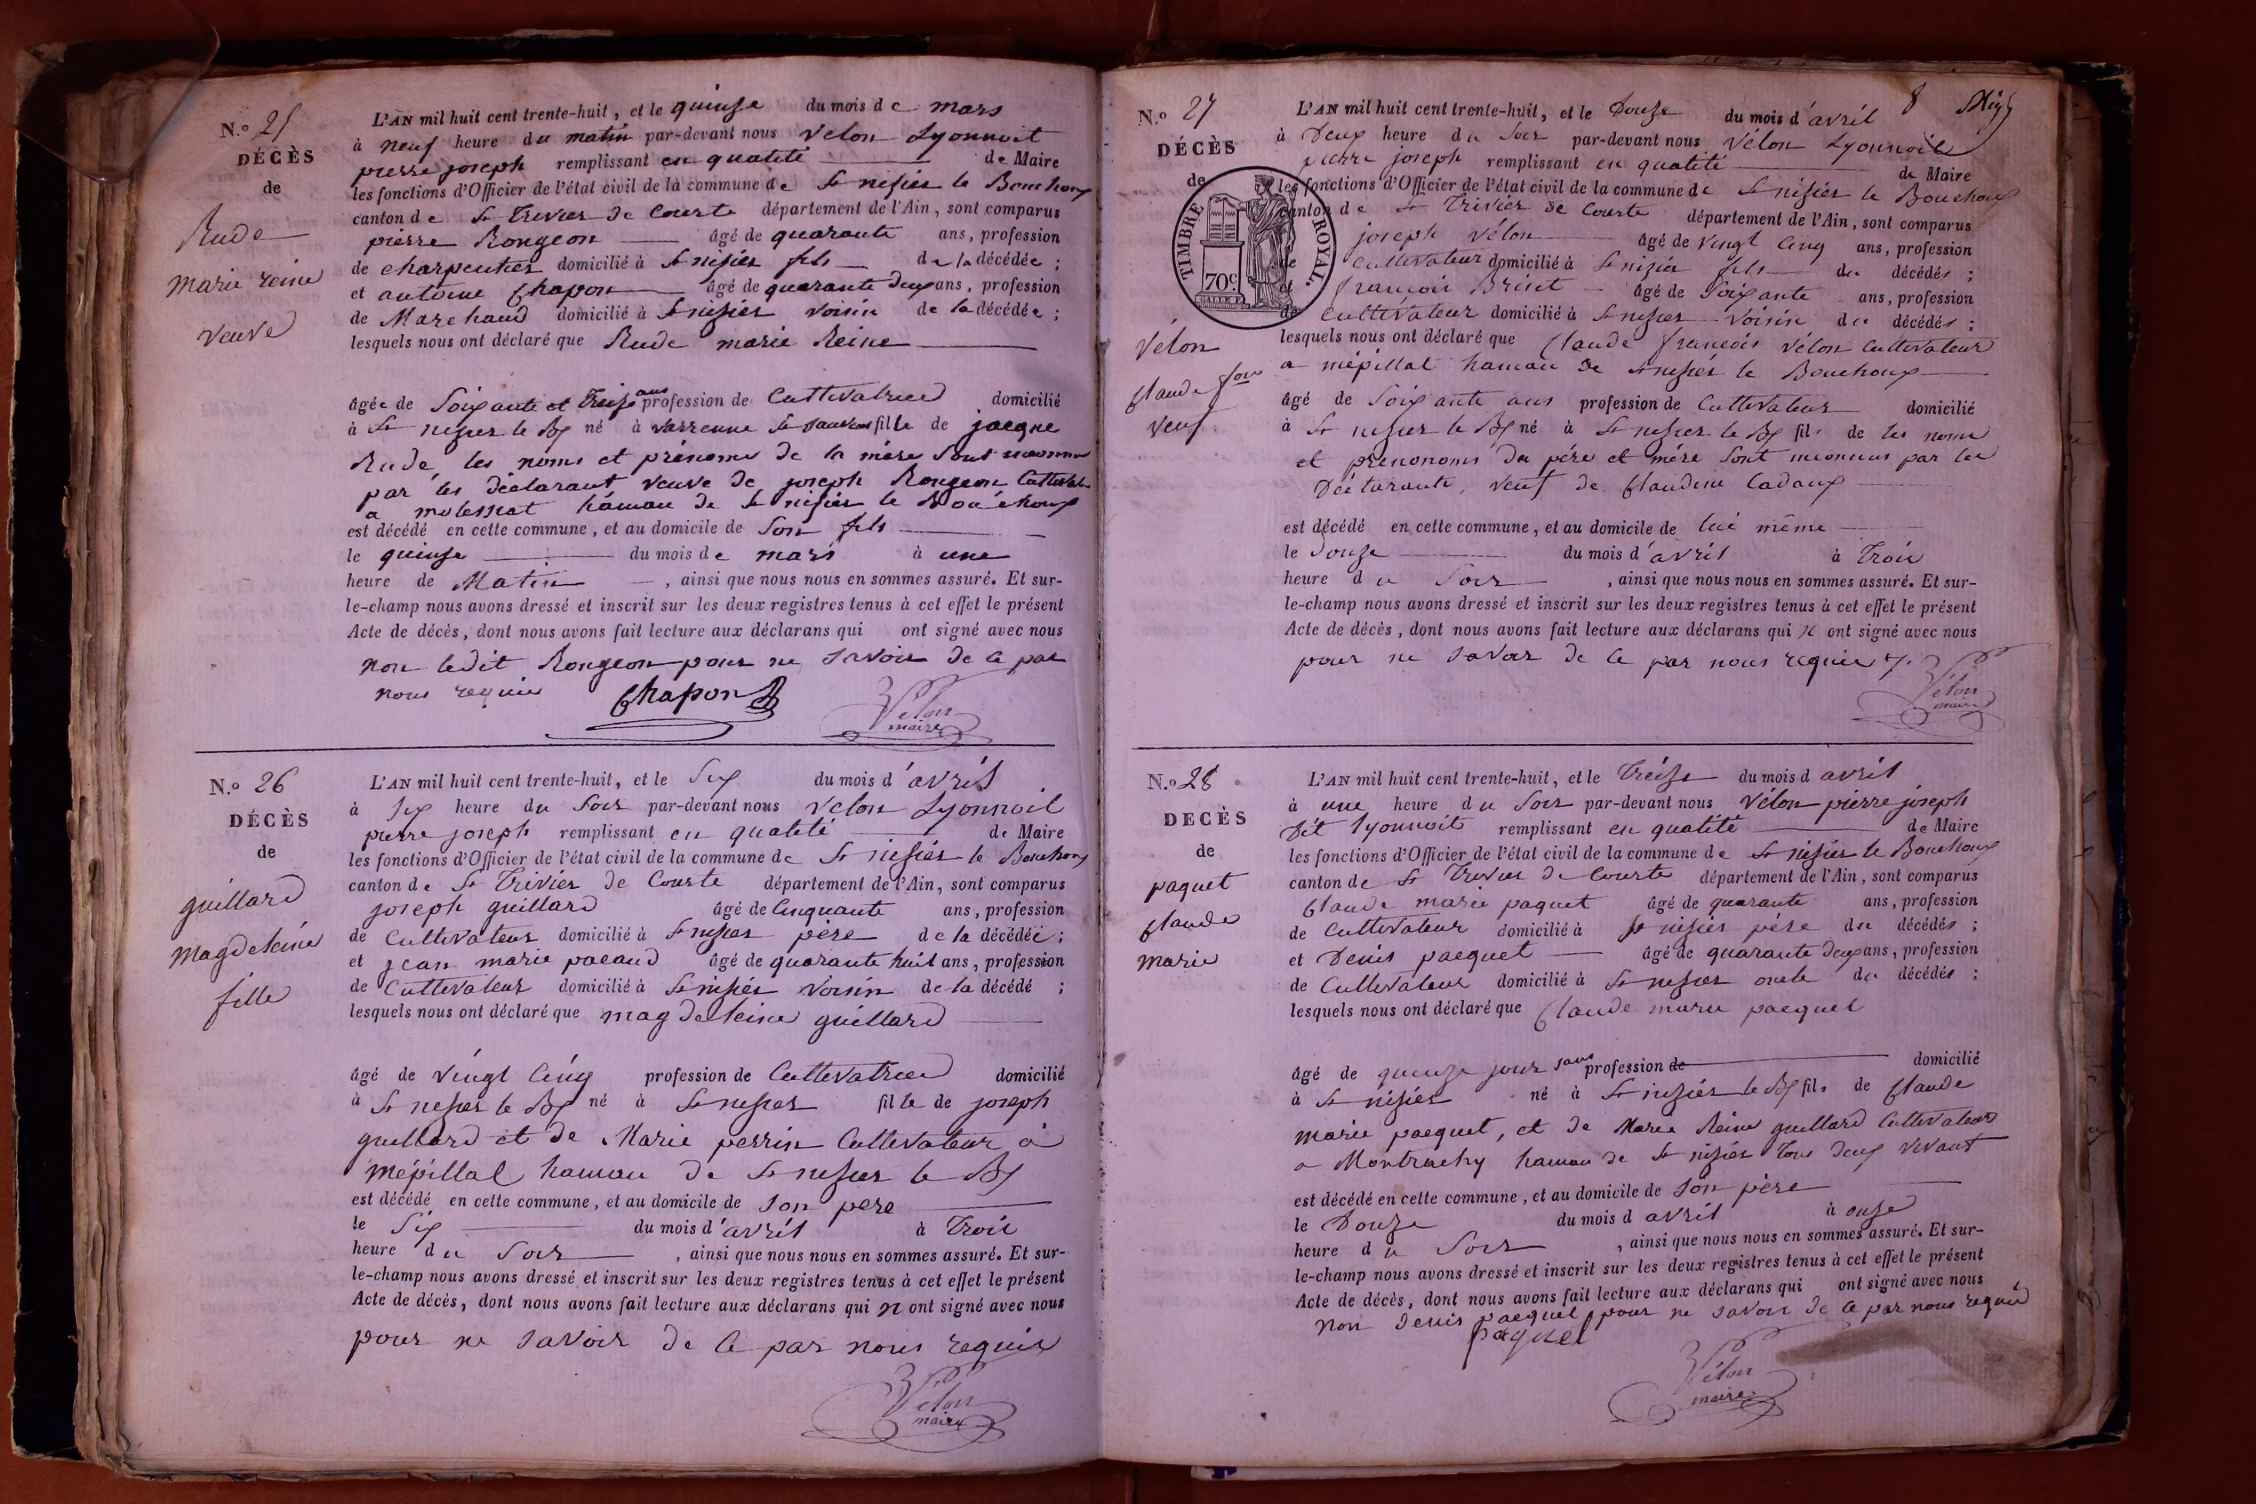 N.º 25
DÉCÈS
de
Rude
marie reine
veuve
L'AN mil huit cent trente-huit, et le quinze du mois de mars
à neuf heure du matin par-devant nous velon Lyonnoit
pierre joseph remplissant en qualité de Maire
les fonctions d'Officier de l'état civil de la commune de St nisier le Bouchoux
canton de St Trivier de Courte département de l'Ain, sont comparus
pierre Rongeon âgé de quarante ans, profession
de charpentier domicilié à St nisier fils de la décédée ;
et antoine Chapon âgé de quarante deux ans, profession
de Marchand domicilié à St nisier voisin de la décédée ;
lesquels nous ont déclaré que Rude marie Reine
âgée de Soixante et treize ans profession de Cultivatrice domicilié
à St nisier le Bx né à varrenne St sauveur fille de jacque
Rude, les noms et prénoms de la mère sont inconnu
par les déclarant veuve de joseph Rongeon Cultivat
a molessiat hamau de St nisier le Bouchoux
est décédé en cette commune, et au domicile de Son fils
le quinze du mois de mars à une
heure de Matin, ainsi que nous nous en sommes assuré. Et sur-
le-champ nous avons dressé et inscrit sur les deux registres tenus à cet effet le présent
Acte de décès, dont nous avons fait lecture aux déclarans qui ont signé avec nous
non ledit Rongeon pour ne savoir de ce par
nous requis Chapon Vélon
maire
N.º 26
DÉCÈS
de
guillard
magdeleine
fille
L'AN mil huit cent trente-huit, et le Six du mois d'avril
à Six heure du Soir par-devant nous velon Lyonnoit
pierre joseph remplissant en qualité de Maire
les fonctions d'Officier de l'état civil de la commune de St nisier le Bouchoux
canton de St Trivier de Courte département de l'Ain, sont comparus
joseph guillard âgé de Cinquante ans, profession
de Cultivateur domicilié à St nisier père de la décédée ;
et jean marie pacaud âgé de quarante huit ans, profession
de Cultivateur domicilié à St nisier voisin de la décédé ;
lesquels nous ont déclaré que magdeleine guillard
âgé de vingt Cinq profession de Cultivatrice domicilié
à St nisier le Bx né à St nisier fille de joseph
guillard et de Marie perrin Cultivateur à
mépillat hamau de St nisier le Bx
est décédé en cette commune, et au domicile de Son père
le Six du mois d'avril à Trois
heure du Soir, ainsi que nous nous en sommes assuré. Et sur-
le-champ nous avons dressé et inscrit sur les deux registres tenus à cet effet le présent
Acte de décès, dont nous avons fait lecture aux déclarans qui n ont signé avec nous
pour ne savoir de ce par nous requis
Vélon
maire
8
N.º 27
DÉCÈS
de
TIMBRE ROYAL.
70c.
Vélon
Claude fois
veuf
L'AN mil huit cent trente-huit, et le Douze du mois d'avril
à Deux heure du Soir par-devant nous Vélon Lyonnoit
pierre joseph remplissant en qualité de Maire
les fonctions d'Officier de l'état civil de la commune de St nisier le Bouchoux
canton de St Trivier de Courte département de l'Ain, sont comparus
joseph vélon âgé de vingt Cinq ans, profession
de Cultivateur domicilié à St nizier fils du décédés ;
et françois Brist âgé de Soixante ans, profession
de Cultivateur domicilié à St nisier voisin du décédés ;
lesquels nous ont déclaré que Claude françois vélon Cultivateur
a mépillat hamau de St nisier le Bouchoux
âgé de Soixante ans profession de Cultivateur domicilié
à St nisier le Bx né à St nisier le Bx fils de les noms
et prenonoms du père et mère sont inconnus par les
Déclarants, veuf de Claudine Cadoux
est décédé en cette commune, et au domicile de lui même
le Douze du mois d'avril à Trois
heure du Soir, ainsi que nous nous en sommes assuré. Et sur-
le-champ nous avons dressé et inscrit sur les deux registres tenus à cet effet le présent
Acte de décès, dont nous avons fait lecture aux déclarans qui n ont signé avec nous
pour ne savoir de ce par nous requis
Vélon
maire
N.º 28
DECÈS
de
paquet
Claude
marie
L'AN mil huit cent trente-huit, et le Treize du mois d avril
à une heure du Soir par-devant nous Vélon pierre joseph
Dit Lyonnoit remplissant en qualité de Maire
les fonctions d'Officier de l'état civil de la commune de St nisier le Bouchoux
canton de St Trivier de Courte département de l'Ain, sont comparus
Claude marie paquet âgé de quarante ans, profession
de Cultivateur domicilié à St nisier père du décédés ;
et Denis pacquet âgé de quarante deux ans, profession
de Cultivateur domicilié à St nisier oncle du décédés ;
lesquels nous ont déclaré que Claude marie pacquet
âgé de quinze jour sans profession de domicilié
à St nisier né à St nizier le Bx fils de Claude
marie pacquet, et de Marie Reine guillard Cultivateur
a Montruchy hamau de St nisier tous deux vivant
est décédé en cette commune, et au domicile de Son père
le Douze du mois d avril à onze
heure du Soir, ainsi que nous nous en sommes assuré. Et sur-
le-champ nous avons dressé et inscrit sur les deux registres tenus à cet effet le présent
Acte de décès, dont nous avons fait lecture aux déclarans qui ont signé avec nous
non denis pacquet pour ne savoir de ce par nous requis
paquet
Vélon
maire